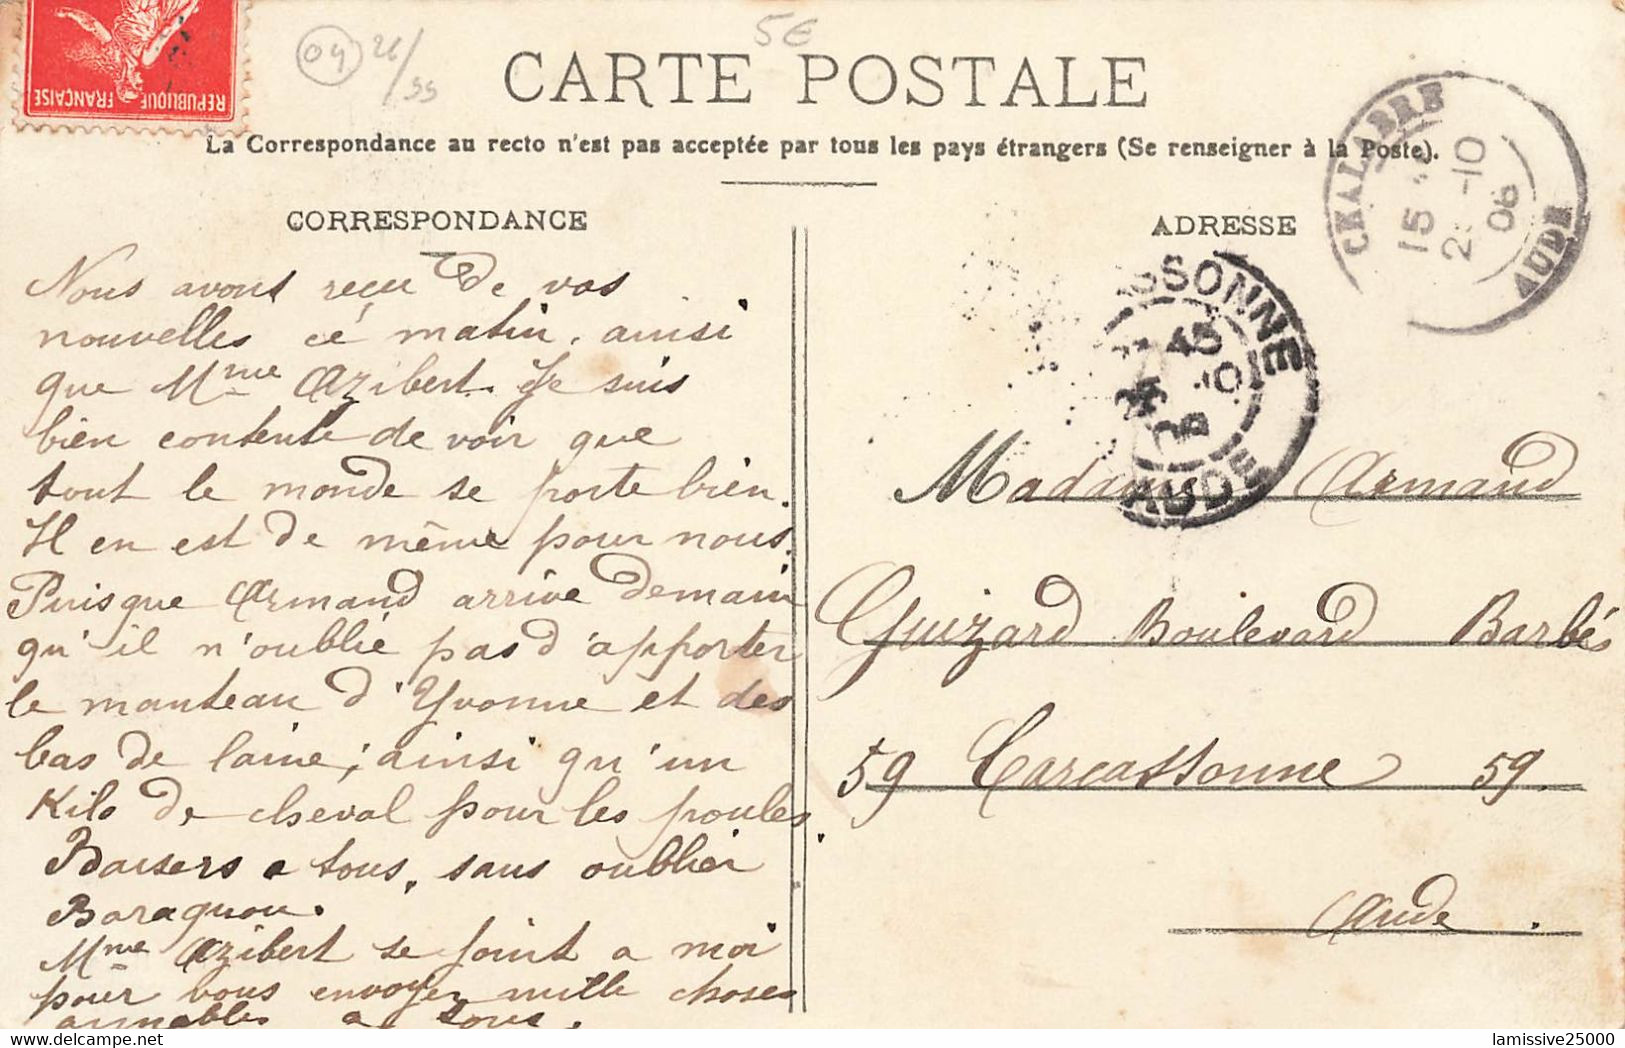 RÉPUBLIQUE FRANÇAISE
04
5€
CARTE POSTALE
La Correspondance au recto n'est pas acceptée par tous les pays étrangers (Se renseigner à la Poste).
CHALABRE
15
2 -10
06
AUDE
CORRESPONDANCE
Nous avons reçu de vos
nouvelles cé matin. ainsi
que Mme Azibert. Je suis
bien contente de voir que
tout le monde se porte bien.
Il en est de même pour nous.
Puisque Armand arrive demain
qu'il n'oublie pas d'apporter
le manteau d'Yvonne et des
bas de laine; ainsi qu'un
Kilo de cheval pour les poules.
Baisers a tous, sans oublier
Baragnou.
Mme Azibert se joint a moi
pour vous envoyer mille choses
aimables a tous.
ADRESSE
SSONNE
AUDE
Madame Armand
Guizard Boulevard Barbés
59 Carcassonne 59.
Aude.
lamissive25000